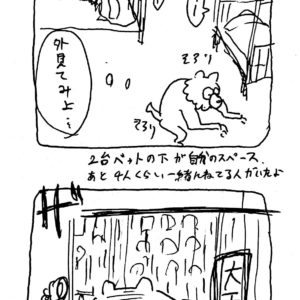 …
外見てみよ…
ぞろり
ぞろり
2台ベットの下が自分のスペース.
あと4人くらい一緒にねてる人がいたよ
大